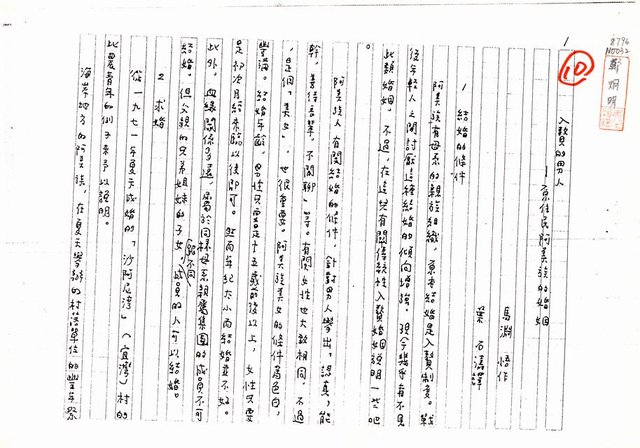 1
8796
N0032
鄭炯明
⑩
入贅的男人
——原住民阿美族的婚姻
馬淵 悟作
葉石濤譯
1 結婚的條件
阿美族有母系的親族組織，原來結婚是入贅制度。
後年輕人之間討厭這種結婚的傾向增強，現今幾乎看不見
此類婚姻。不過，在這兒有關傳統性入贅婚姻說明一些吧
。
阿美族人有關結婚的條件，針對男人舉出，認真，能
幹，善待老輩，不閒聊」等。有關女性也大致相同，不過
，是個「美女」也很重要。阿美族美女的條件為色白，
豐滿。結婚年齡，男性只要是十五歲前後以上，女性只要
是初次月經來臨以後即可。然而年紀太小而結婚並不好。
此外，血緣關係多遠，屬於同樣母系親屬集團的成員不可
結婚。但父親的兄弟姐妹的子女，成員的人可以結婚。
2 求婚
從一九七一年夏天成婚的「沙阿尼灣」（宜灣）村的
此農青年的例子來予以說明。
海岸地方的阿美族，在夏天舉辦的村落單位的豐年祭